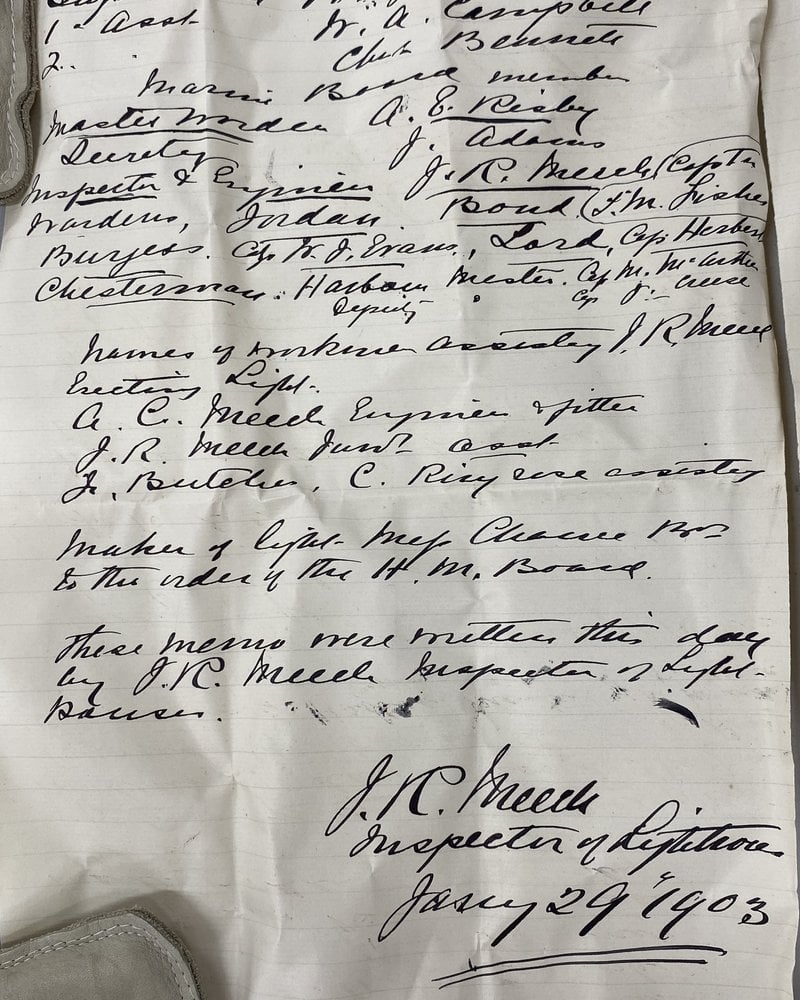 1 Asst W. A. Campbell
2.. Chas Bennett
Marine Board member
Master Warden A. E. Risby
Secretary J. Adams
Inspector & Engineer J. R. Meech (Captn
Wardens, Jordan. Bond, (T. M. Fisher
Burgess. Cap W. J. Evans, Lord, Cap Herbert
Chesterman. Harbour Master. Cap M. McArthur
Deputy Cap J.
Names of workmen assisting J. R. Meech
Erecting Light.
A. C. Meech Engineer & fitter
J. R. Meech Junr asst
Butcher, C. Ringrose assisting
Maker of light. Mess Chance Bros
to the order of the H. M. Board.
These memo were written this day
by J. R. Meech Inspector of Light-
houses.
J. R. Meech
Inspector of Lighthouses
Jany 29" 1903